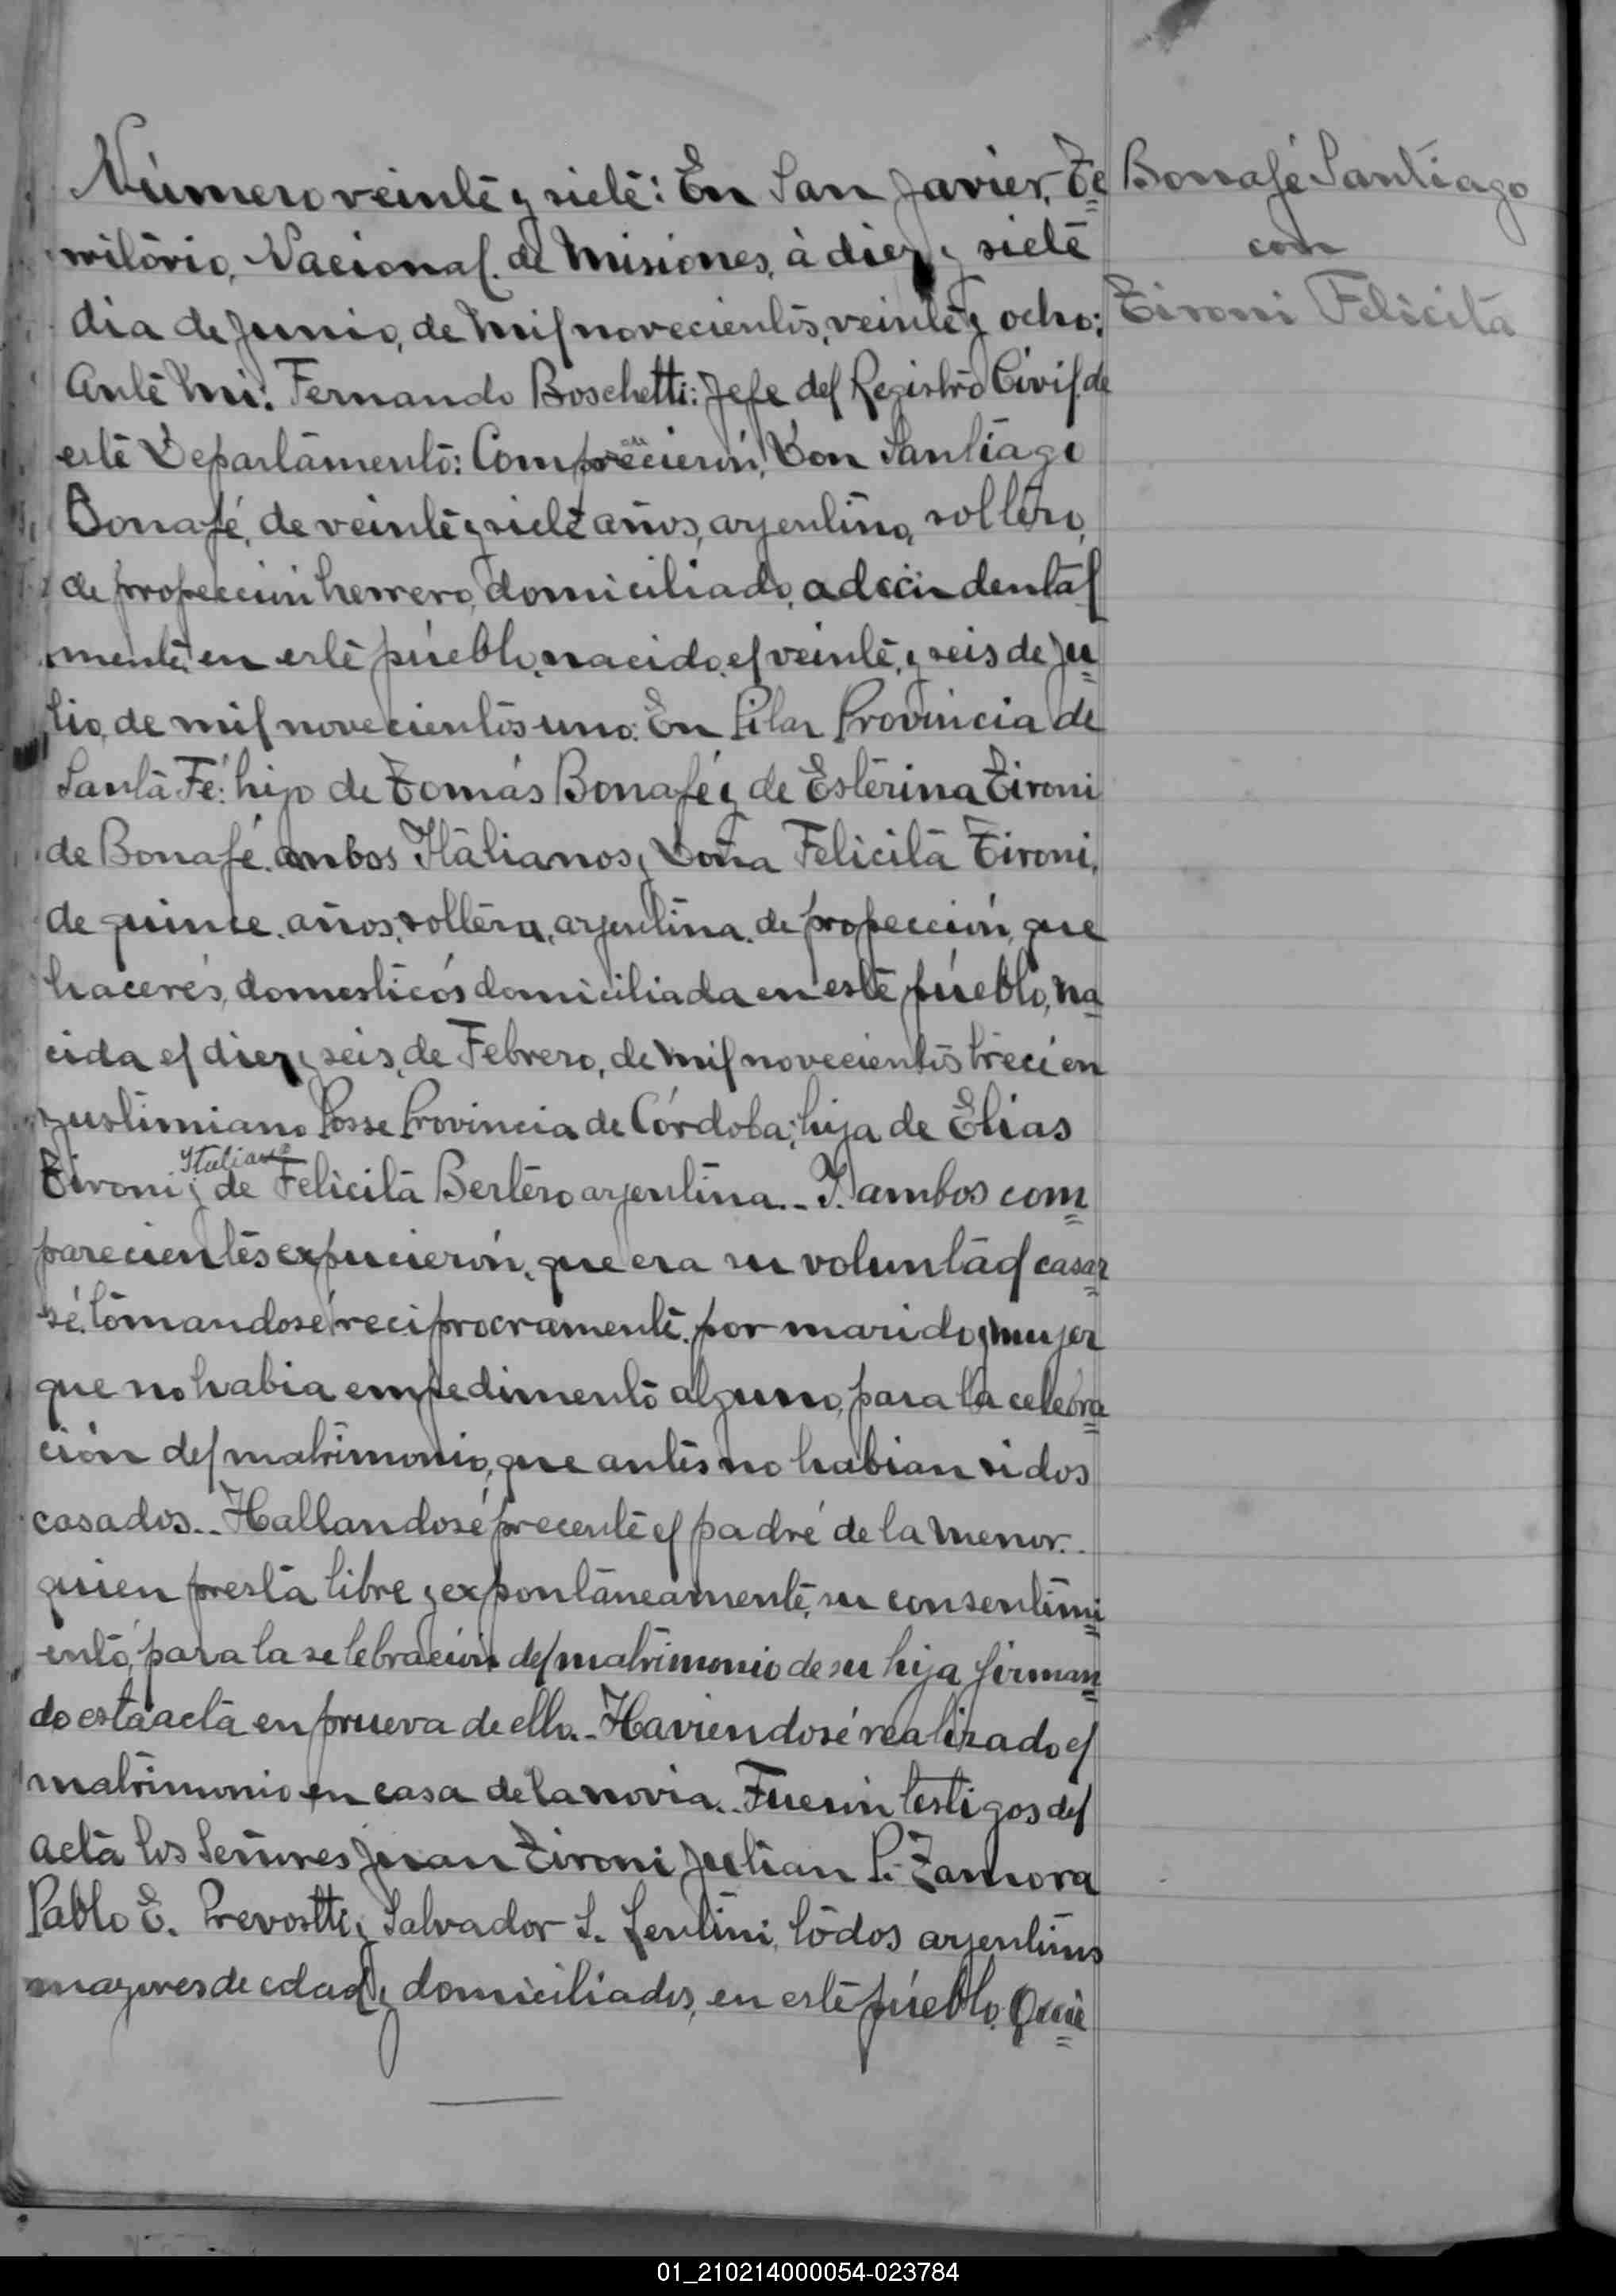 Número veinte y siete: En San Javier, Te
Bonafé Santiago
rritório, Nacional. de Misiones, à diez y siete
con
dia de Junio, de Mil novecientos, veinte y ocho:
Tironi Felicita
Ante Mi: Fernando Boschetti: Jefe del Registro Civil. de
este Departamento: Comprecieron, Don Santiago
Bonafé, de veinte y siete años, arjentino, soltero,
de profeccion herrero, domiciliado, adccindental
mente, en este púeblo, nacido, el veinte, y seis de Ju
lio, de mil novecientos uno: En Pilar Provincia de
Santa Fé: hijo de Tomás Bonafé y de Esterina Tironi
de Bonafé. ambos Italianos y Doña Felicita Tironi,
de quince. años, soltera, arjentina. de profección, que
hacerés, domesticós domiciliada en este púeblo, na
cida el diez y seis, de Febrero, de Mil novecientos treci en
Justimiano Posse Provincia de Córdoba; hija de Elias
Italiano
Tironi y de Felicita Bertero arjentina.. Y. ambos com
parecientes expucierón, que era su voluntad casar
sé. tomandosé reciprocramente. por marido y mujer
que no habia empedimento alguno, para la celebra
ción del matrimonio, que antes no habian sidos
casados.. Hallandosé precente el padré de la Menor..
quien presta libre y expontáneamente, su consentimi
ento, para la selebración del matrimonio de su hija firman
do esta acta en prueva de ello.- Haviendosé realizado el
matrimonio en casa de la novia.. Fueron testigos del
acta los Señores Juan Tironi Julian P. Zamora
Pablo E. Prevostti y Salvador S. Lentini, todos arjentinos
mayores de edad, y domiciliados, en este púeblo. Quie
01_210214000054-023784